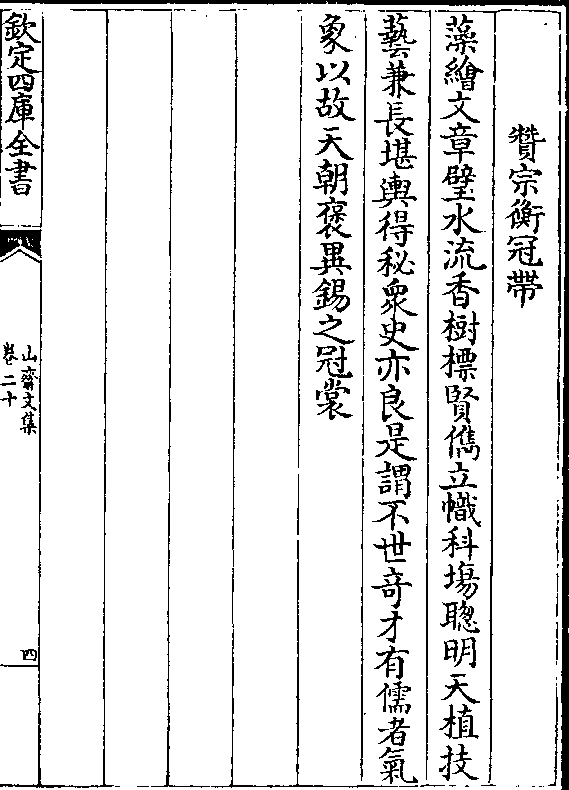 贊宗衡冠帶
藻繪文章璧水流香樹標賢儁立幟科塲聰明天植技
藝兼長堪輿得秘衆史亦良是謂不世竒才有儒者氣
象以故天朝褒異錫之冠裳
欽定四庫全書
山齋文集
卷二十
四